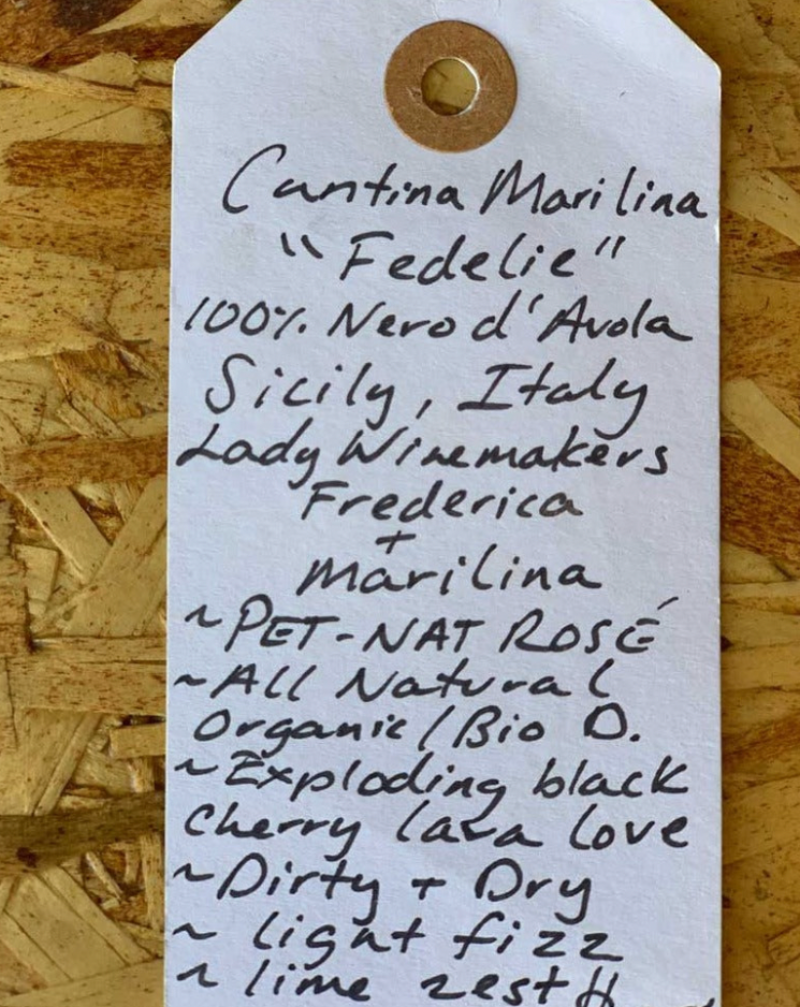 Cantina Marilina
"Fedelie"
100% Nero d'Avola
Sicily, Italy
Lady Winemakers
Frederica
+
Marilina
~PET-NAT ROSÉ
~All Natural
Organic/Bio D.
~Exploding black
cherry lava love
~Dirty + Dry
~ light fizz
~ lime zest